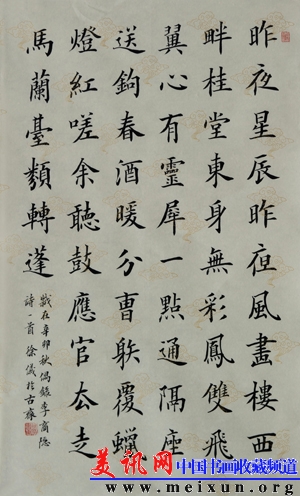 昨夜星辰昨夜風畫樓西
畔桂堂東身無彩鳳雙飛
翼心有靈犀一點通隔座
送鉤春酒暖分曹躲覆蠟
燈紅嗟余聽鼓應官去走
馬蘭臺類轉蓬
歲在辛卯秋偶錄李商隱
詩一首 徐儀於古雍
美讯网
中国书画收藏频道
www.meixun.org